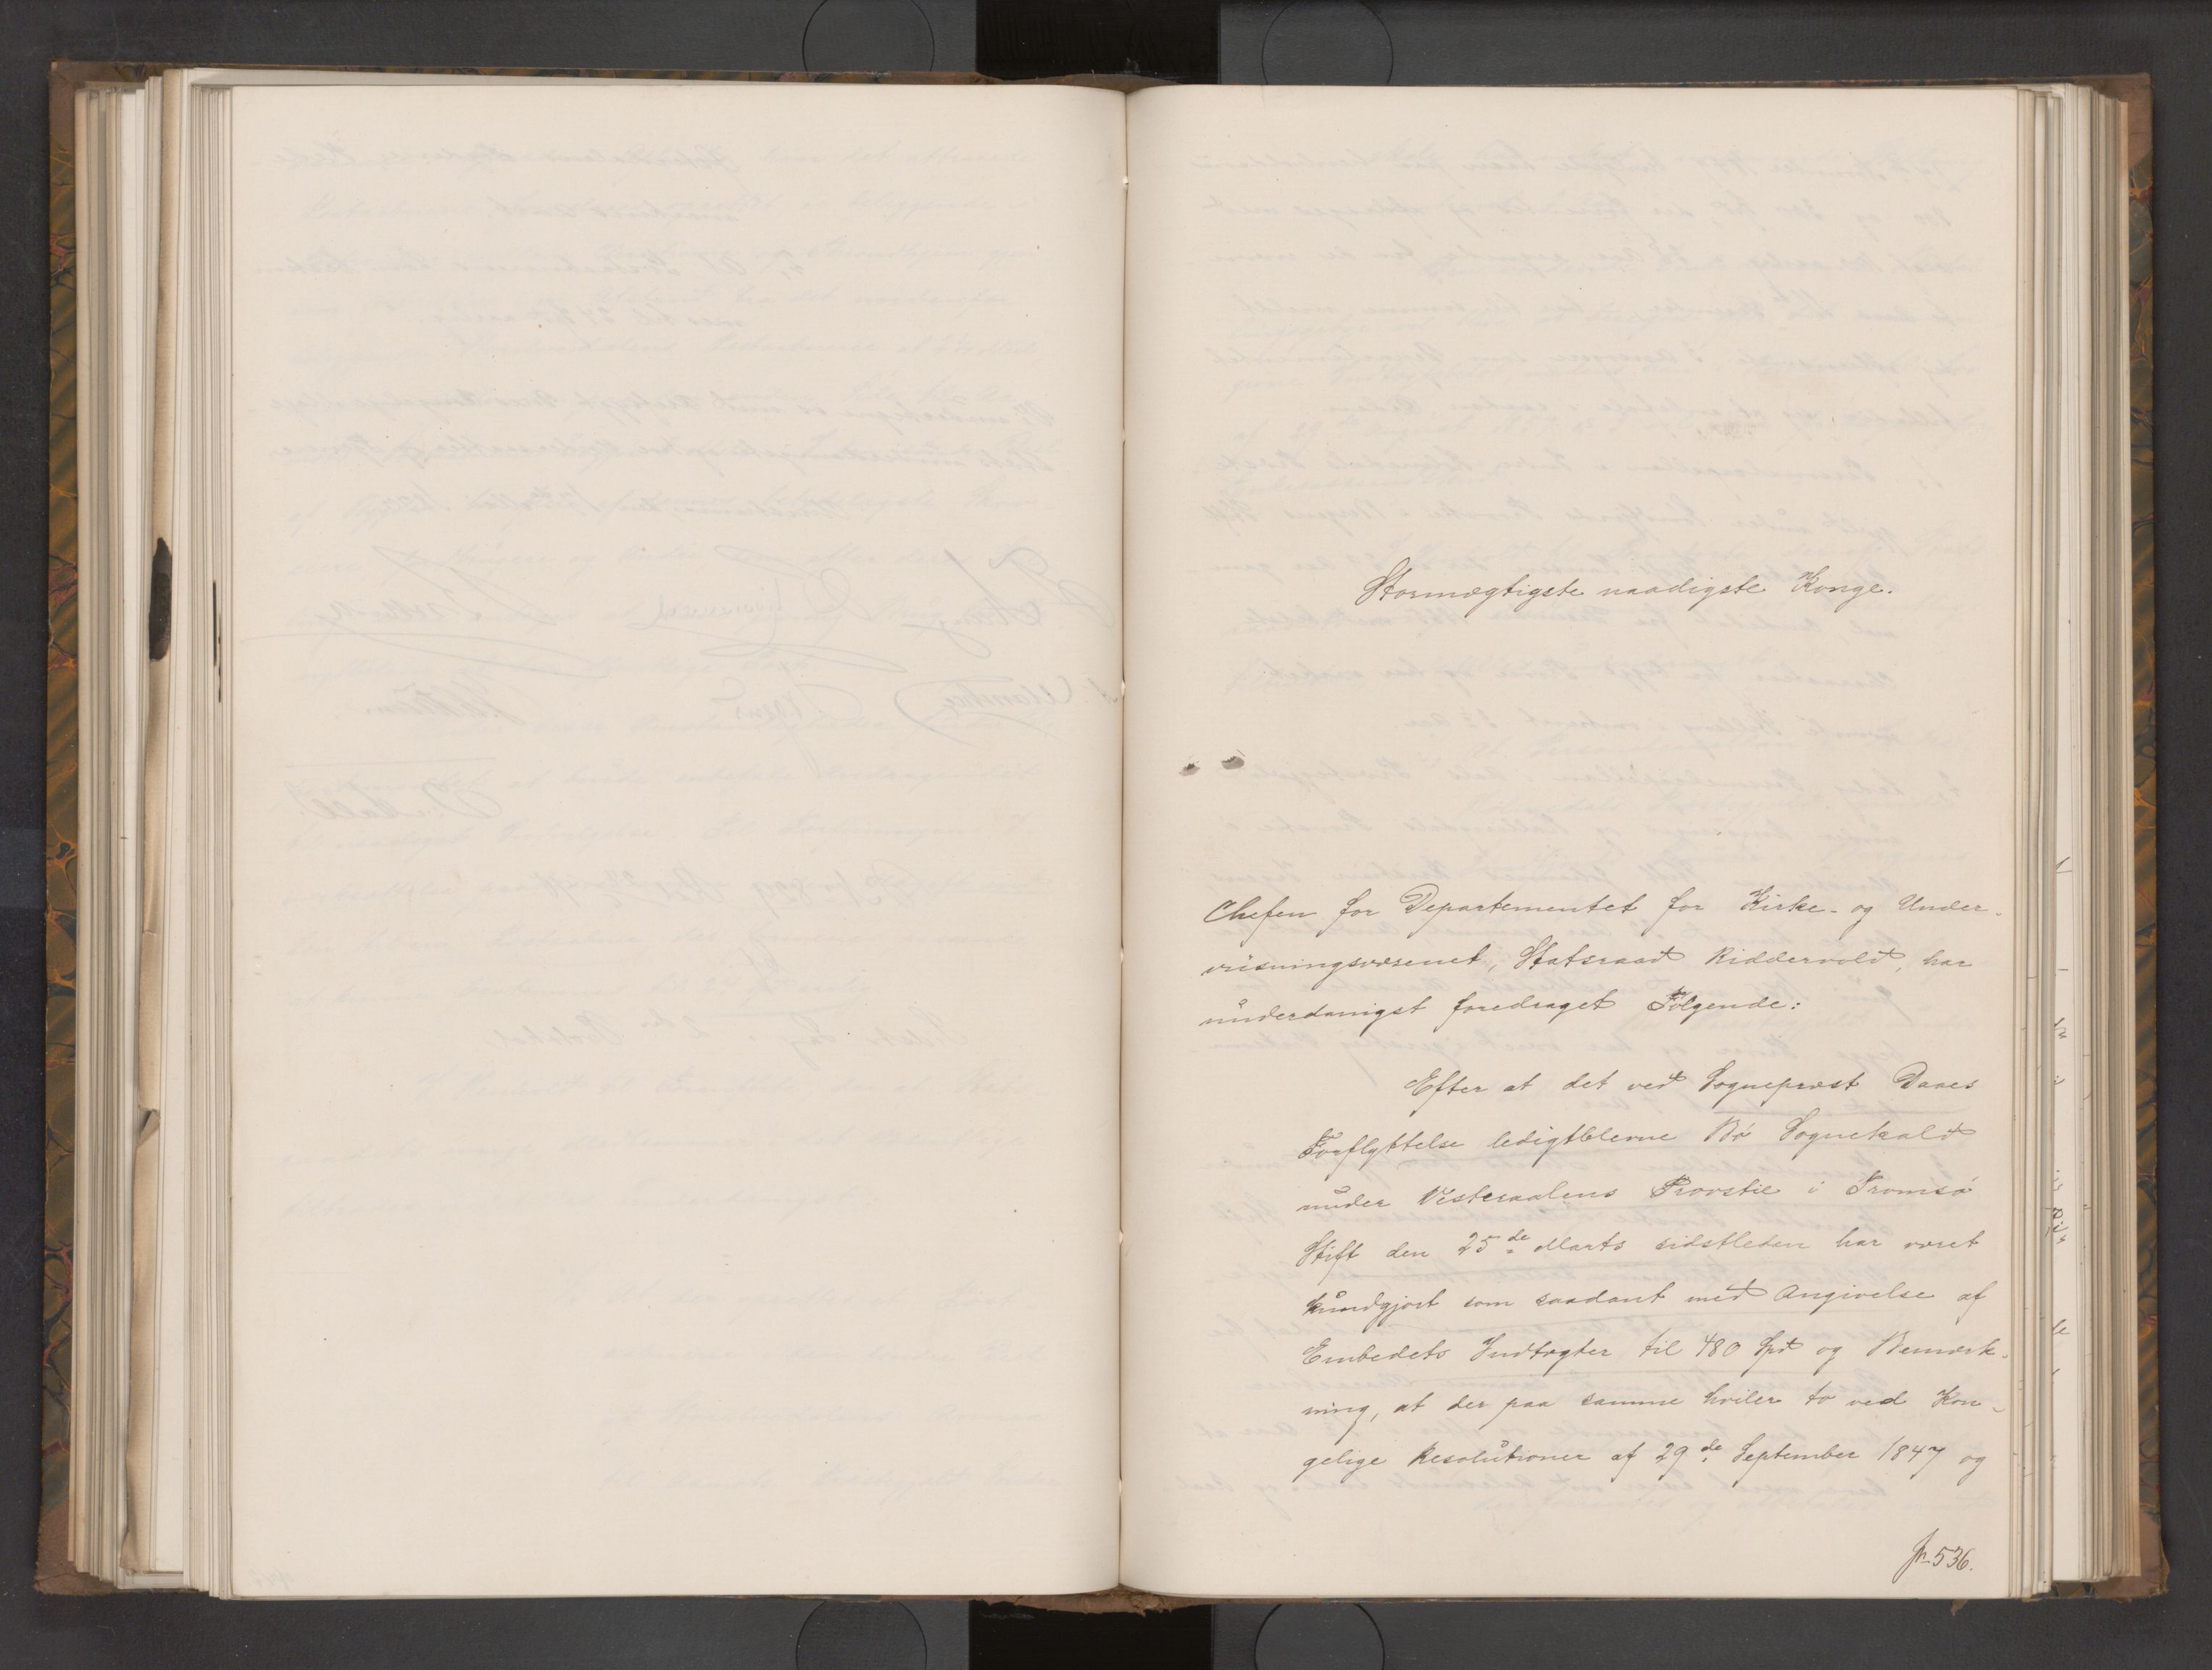 Stormægtigste naadigste Konge.
Chefen for Departementet for Kirke- og Under-
visningsvæsenet, Statsraad Riddervold, har
underdanigst foredraget Følgende:
Efter at det ved Sognepræst Daaes
Forflyttelse ledigtblevne Bø Sognekald
under Vesteraalens Provstie i Tromsø
Stift den 25de Marts sidstleden har været
kundgjort som saadant med Angivelse af
Embedets Indtægter til 480 Spd og Bemærk-
ning, at der paa samme hviler to ved Kon-
gelige Resolutioner af 29de September 1847 og
536.